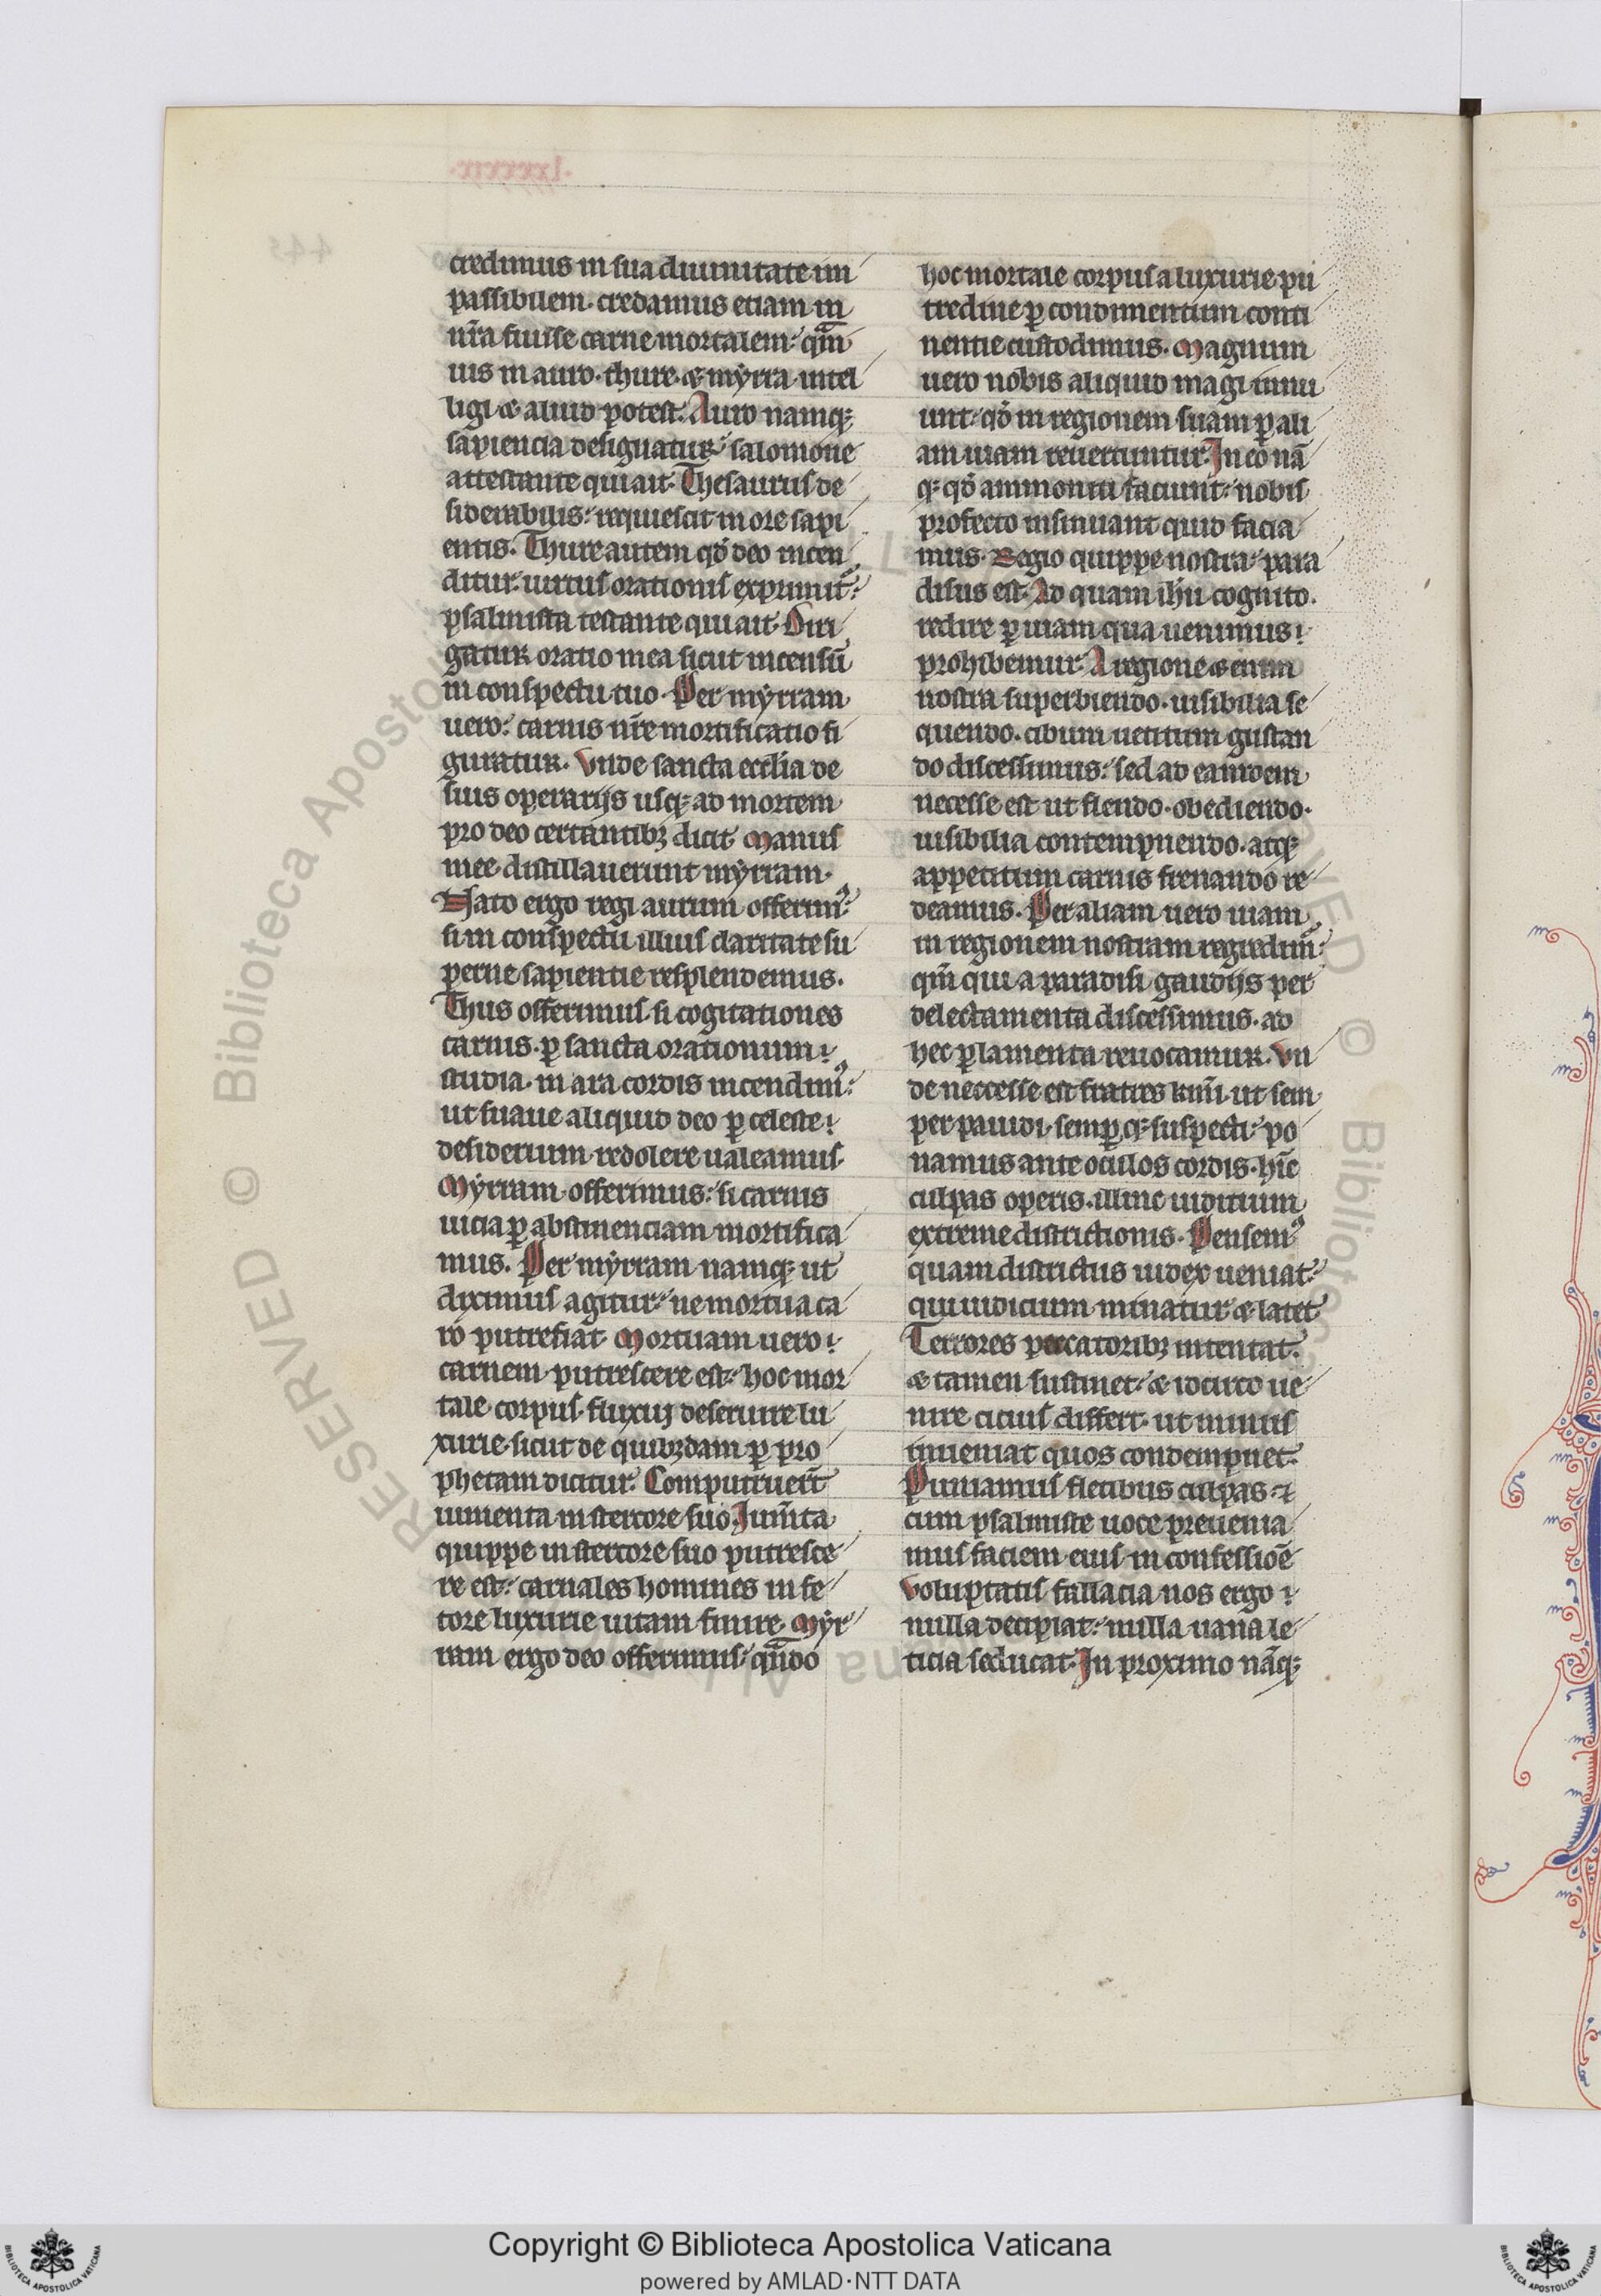 credimus in sua diuinitate im
passibilem· credamus etiam in
nr̄a fuisse carne mortalem· qm̄
uis in auro· thure· & myrra intel
ligi & aliud potest. Auro namq;
sapiencia designatur· salomone
attestante qui ait· Thesaurus de
siderabilis· requiescit in ore sapi
entis. Thure autem qd̄ deo incen
ditur· uirtus orationis exprimit᷒·
psalmista testante qui ait· Diri
gatur oratio mea sicut incensū
in conspectu tuo· Per myrram
uero· carnis nr̄e mortificatio fi
guratur. Vnde sancta eccl̄ia de
suis operarijs usq; ad mortem
pro deo certantibꝫ dicit· Manus
mee distillauerunt myrram·
Nato ergo regi aurum offerim᷒·
si in conspectu illius claritate su
perne sapientie resplendemus.
Thus offerimus· si cogitationes
carnis· ꝑ sancta orationum
studia· in ara cordis incendim᷒·
ut suaue aliquid deo ꝑ celeste
desiderium redolere ualeamus·
Myrram offerimus· si carnis
uicia ꝑ abstinenciam mortifica
mus. Per myrram namq; ut
diximus agitur· ne mortua ca
ro putrefiat· Mortuam uero
carnem putrescere est· hoc mor
tale corpus fluxui deseruire lu
xurie· sicut de quibꝫdam ꝑ pro
phetam dicitur· Computruer̄t
iumenta in stercore suo· Ium̄ta
quippe in stercore suo putresce
re est· carnales homines in fe
tore luxurie uitam finire· Myr
ram ergo deo offerimus· qn̄do
hoc mortale corpus a luxurie pu
tredine ꝑ condimentum conti
nentie custodimus. Magnum
uero nobis aliquid magi innu
unt· qd̄ in regionem suam ꝑ ali
am uiam reuertuntur· In eo nā
q; qd̄ ammoniti faciunt· nobis
profecto insinuant quid facia
mus· Regio quippe nostra· para
disus est· Ad quam ih̄u cognito·
redire ꝑ uiam qua uenimus
prohibemur· A regione etenim
nostra superbiendo· uisibilia se
quendo· cibum uetitum gustan
do discessimus· sed ad eam
necesse est ut flendo· obediendo·
uisibilia contempnendo· atq;
appetitum carnis frenando re
deamus. Per aliam uero uiam
in regionem nostram regredim᷒·
qm̄ qui a paradisi gaudijs per
delectamenta discessimus· ad
hec ꝑ lamenta reuocamur. Vn
de neccesse est fratres km̄i· ut sem
per pauidi· semꝑq; suspecti· po
namus ante oculos cordis· hīc
culpas operis· illinc iudicium
extreme districtionis· Pensem᷒
quam districtus iudex ueniat·
qui iudicium minatur & latet
Terrores peccatoribꝫ intentat·
& tamen sustinet· & idcirco ue
nire cicius differt· ut minus
inueniat quos condempnet·
Puniamus fletibus culpas· ⁊
cum psalmiste uoce preuenia
mus faciem eius in confessiōe
Voluptatis fallacia nos ergo
nulla decipiat· nulla uana le
ticia seducat· In proximo nāq;
RESERVED © Biblioteca Apostolica
Copyright © Biblioteca Apostolica Vaticana
powered by AMLAD·NTT DATA